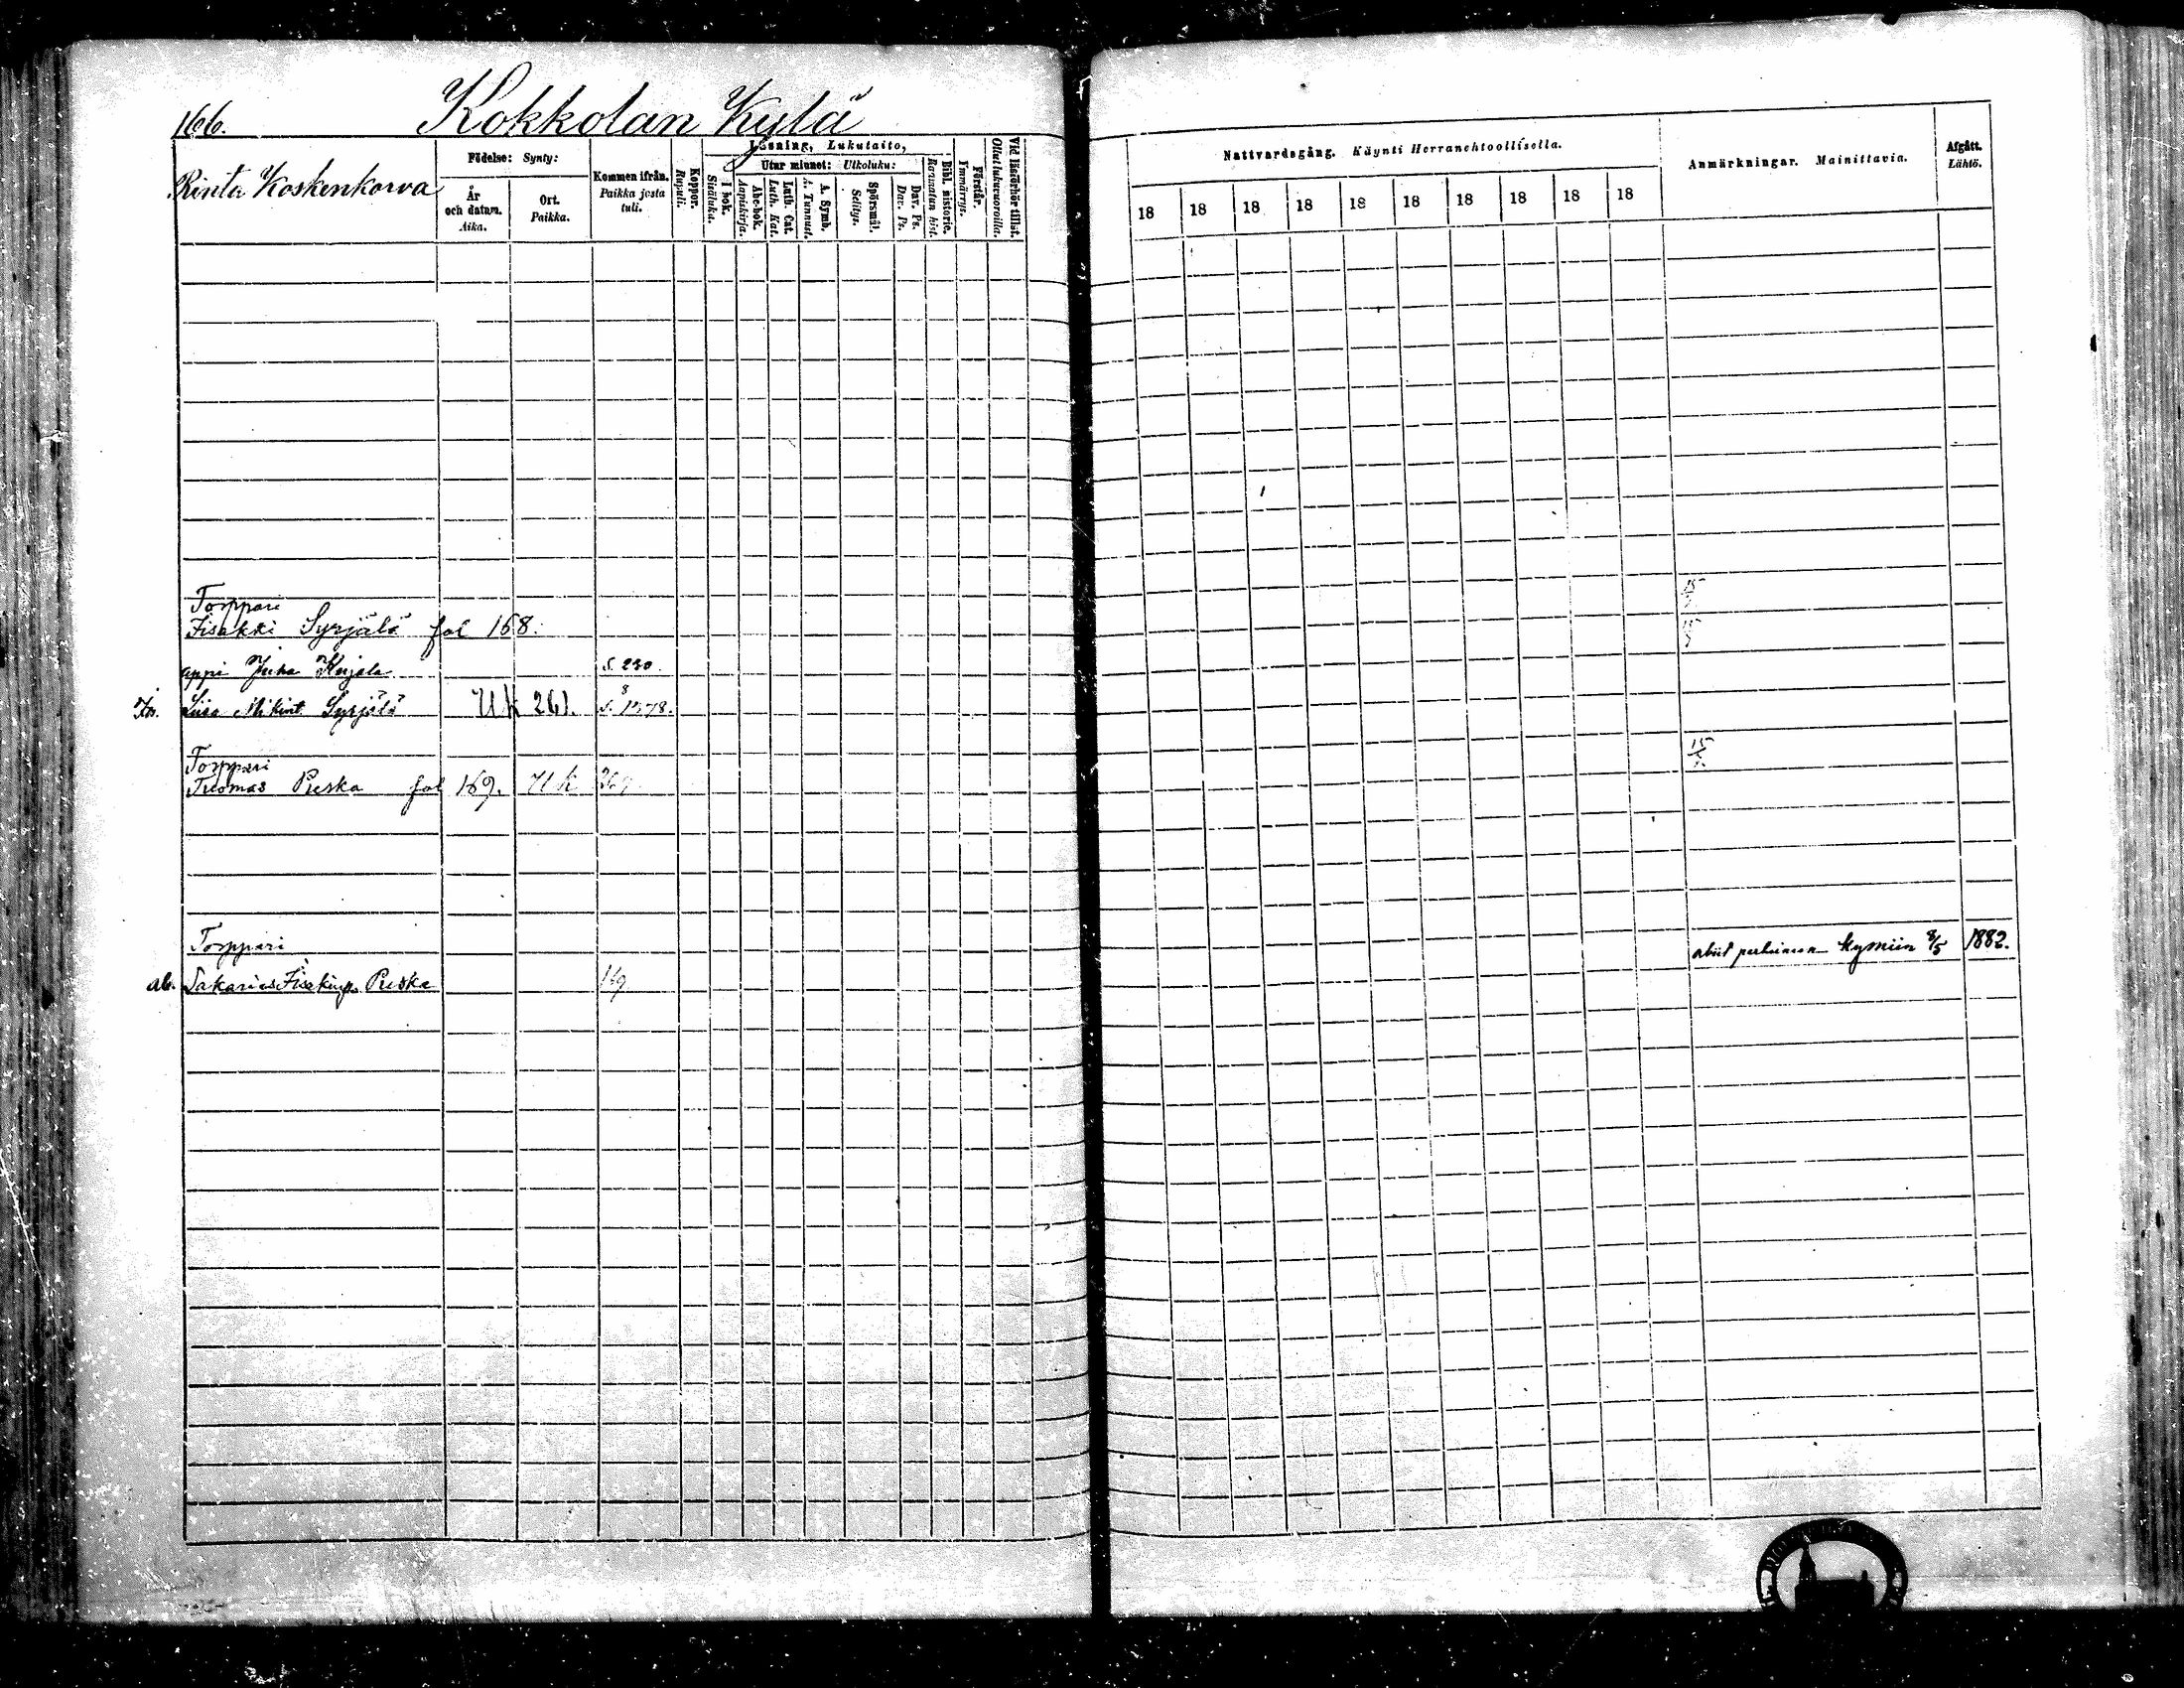 166. Kokkolan Kylä
Rinta Koskenkorva
Födelse: Synty:
År och datum. Aika.
Ort. Paikka.
Kommen ifrån. Paikka josta tuli.
Koppor. Rupuli.
Läsning, Lukutaito,
I bok. Sisäluku.
Utur minnet: Ulkoluku:
Abc-bok. Aapiskirja.
Luth. Cat. Luth. Kat.
A. Symb. A. Tunnust.
Spörsmål. Selitys.
Dav. Ps. Dav. Ps.
Bibl. historie. Raamatun hist.
Förstår. Ymmärrys.
Vid läsförhör tillst. Ollut lukuvuoroilla.
Nattvardsgång. Käynti Herranehtoollisella.
18 18 18 18 18 18 18 18 18 18
Anmärkningar. Mainittavia.
Afgått. Lähtö.
Torppari
Iisakki Syrjälä fol 168.
appi Juha s. 230.
Liisa Mikint. Syrjälä Uk 261.
Torppari
Tuomas Puska fol 169. Uk 269
15
Torppari
abiit perheineen Kymiin 8/5 1882.
ab. Sakarias Iisakinp. Puska 169